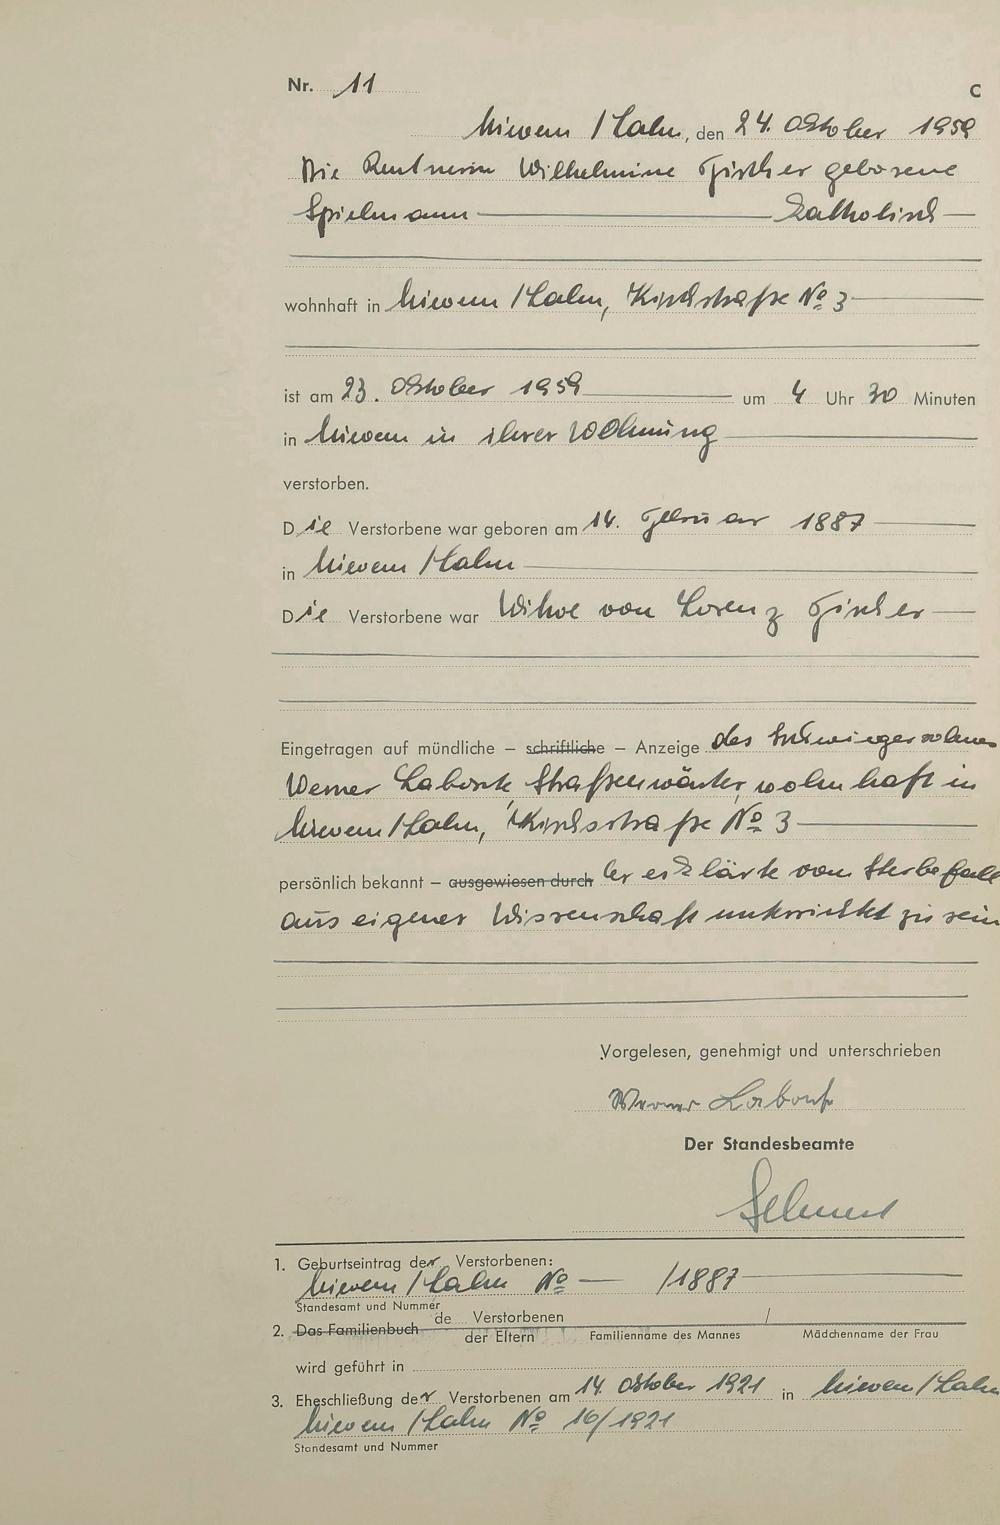 Nr. 11
C
Nievern / Lahn, den 24. Oktober 1959
Die Rentnerin Wilhelmine Fischer geborene
Spielmann — katholisch —
wohnhaft in Nievern / Lahn, Kirchstraße No 3 —
ist am 23. Oktober 1959 — um 4 Uhr 30 Minuten
in Nievern in ihrer Wohnung —
verstorben.
Die Verstorbene war geboren am 14. Februar 1887 —
in Nievern / Lahn —
Die Verstorbene war Witwe von Lorenz Fischer —
Eingetragen auf mündliche – schriftliche – Anzeige des Schwiegersohnes
Werner Straßenwärter, wohnhaft in
Nievern / Lahn, Kirchstraße No 3 —
persönlich bekannt – ausgewiesen durch Er erklärte vom Sterbefall
aus eigener Wissenschaft unterrichtet zu sein
Vorgelesen, genehmigt und unterschrieben
Werner
Der Standesbeamte
1. Geburtseintrag der Verstorbenen:
Nievern / Lahn No — /1887 —
Standesamt und Nummer
2. Das Familienbuch de Verstorbenen /
der Eltern Familienname des Mannes Mädchenname der Frau
wird geführt in
3. Eheschließung der Verstorbenen am 14. Oktober 1921 in Nievern / Lahn
Nievern / Lahn No 16/1921
Standesamt und Nummer